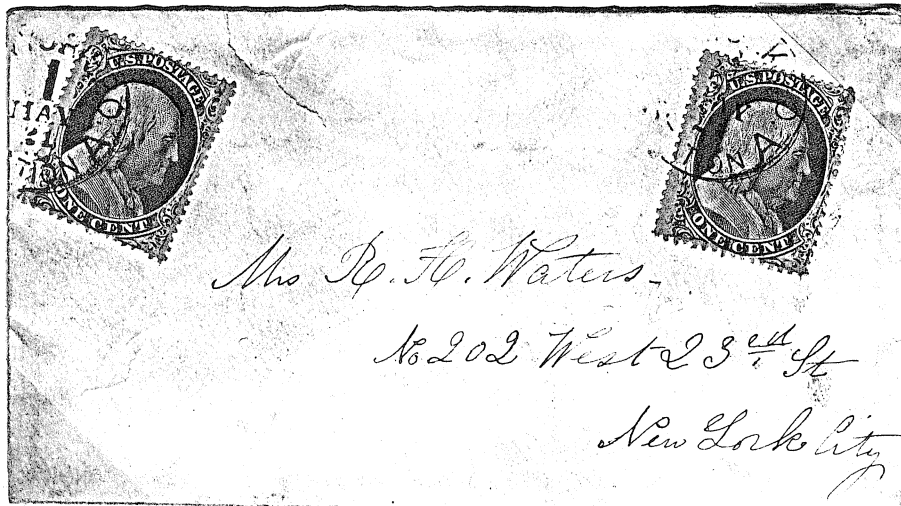 U.S. POSTAGE
ONE CENT
MAY
21
U.S. POSTAGE
ONE CENT
Mrs R. H. Waters-
No 202 West 23ed St
New York City